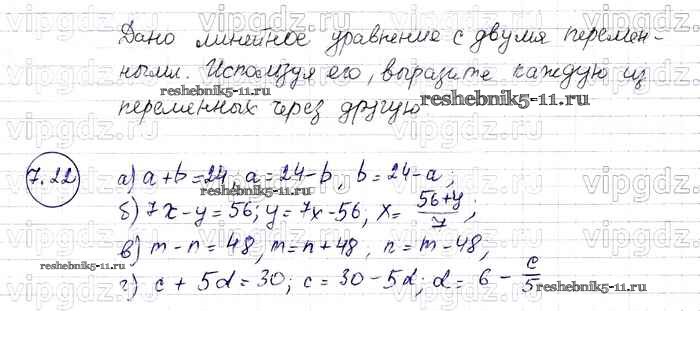 Дано линейное уравнение с двумя перемен-
ными. Используя его, выразите каждую из
переменных через другую
reshebnik5-11.ru
reshebnik5-11.ru
7.22
а) a + b = 24, a = 24 - b, b = 24 - a;
reshebnik5-11.ru
б) 7x - y = 56; y = 7x - 56, x = (56+y)/7;
в) m - n = 48, m = n + 48; n = m - 48,
reshebnik5-11.ru
г) c + 5d = 30; c = 30 - 5d; d = 6 - c/5
reshebnik5-11.ru
vipgdz.ru